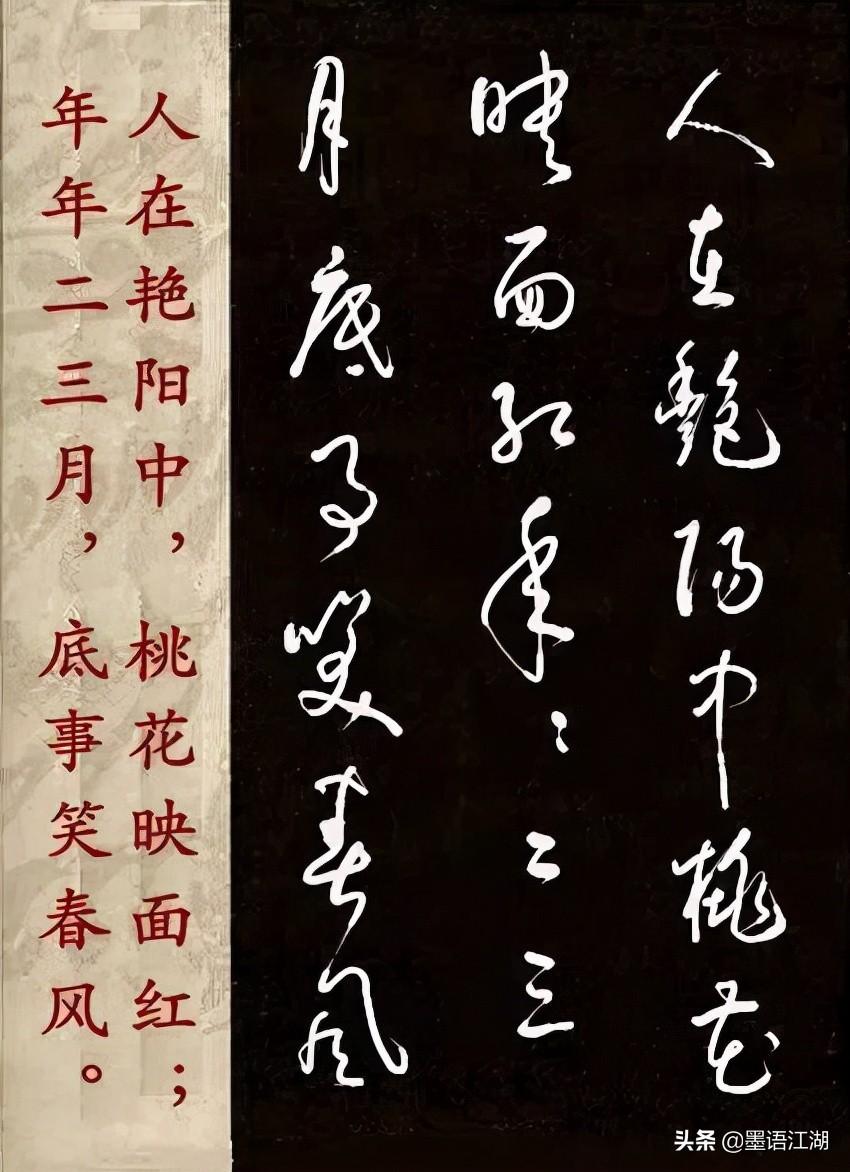 人在艳阳中，桃花映面红；
年年二三月，底事笑春风。
人在艷陽中桃花
映面红年〻二三
月底事笑春風
头条 @墨语江湖